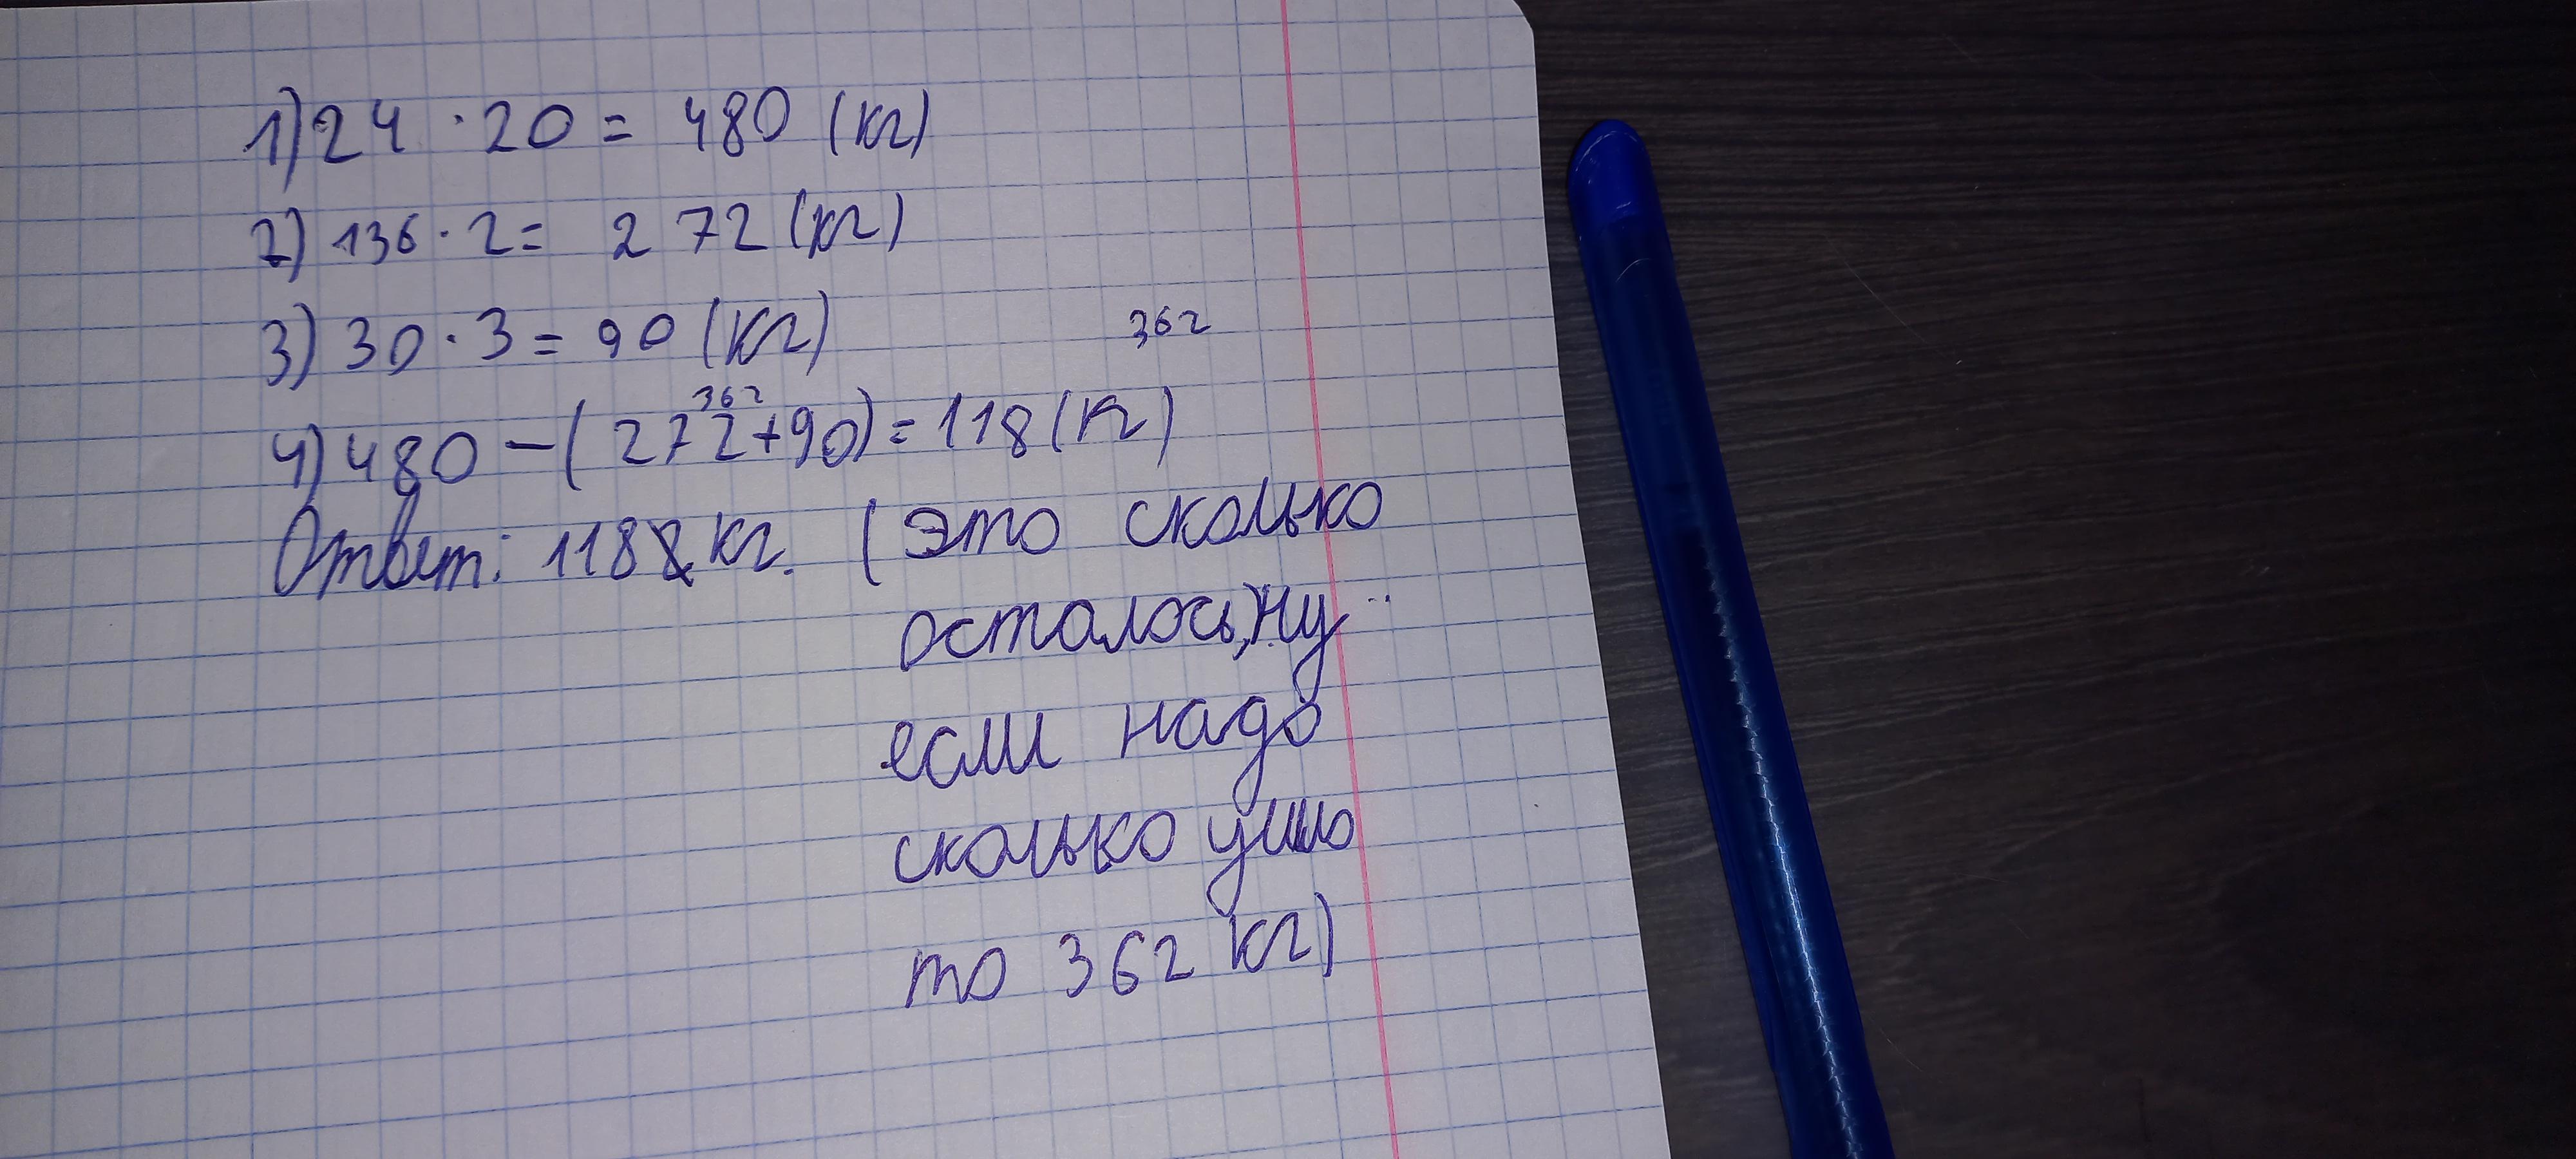 1) 24 · 20 = 480 (кг)
2) 136 · 2 = 272 (кг)
3) 30 · 3 = 90 (кг)
362
362
4) 480 - (272+90) = 118 (кг)
Ответ: 118 кг. (это сколько
осталось, ну
если надо
сколько ушло
то 362 кг)